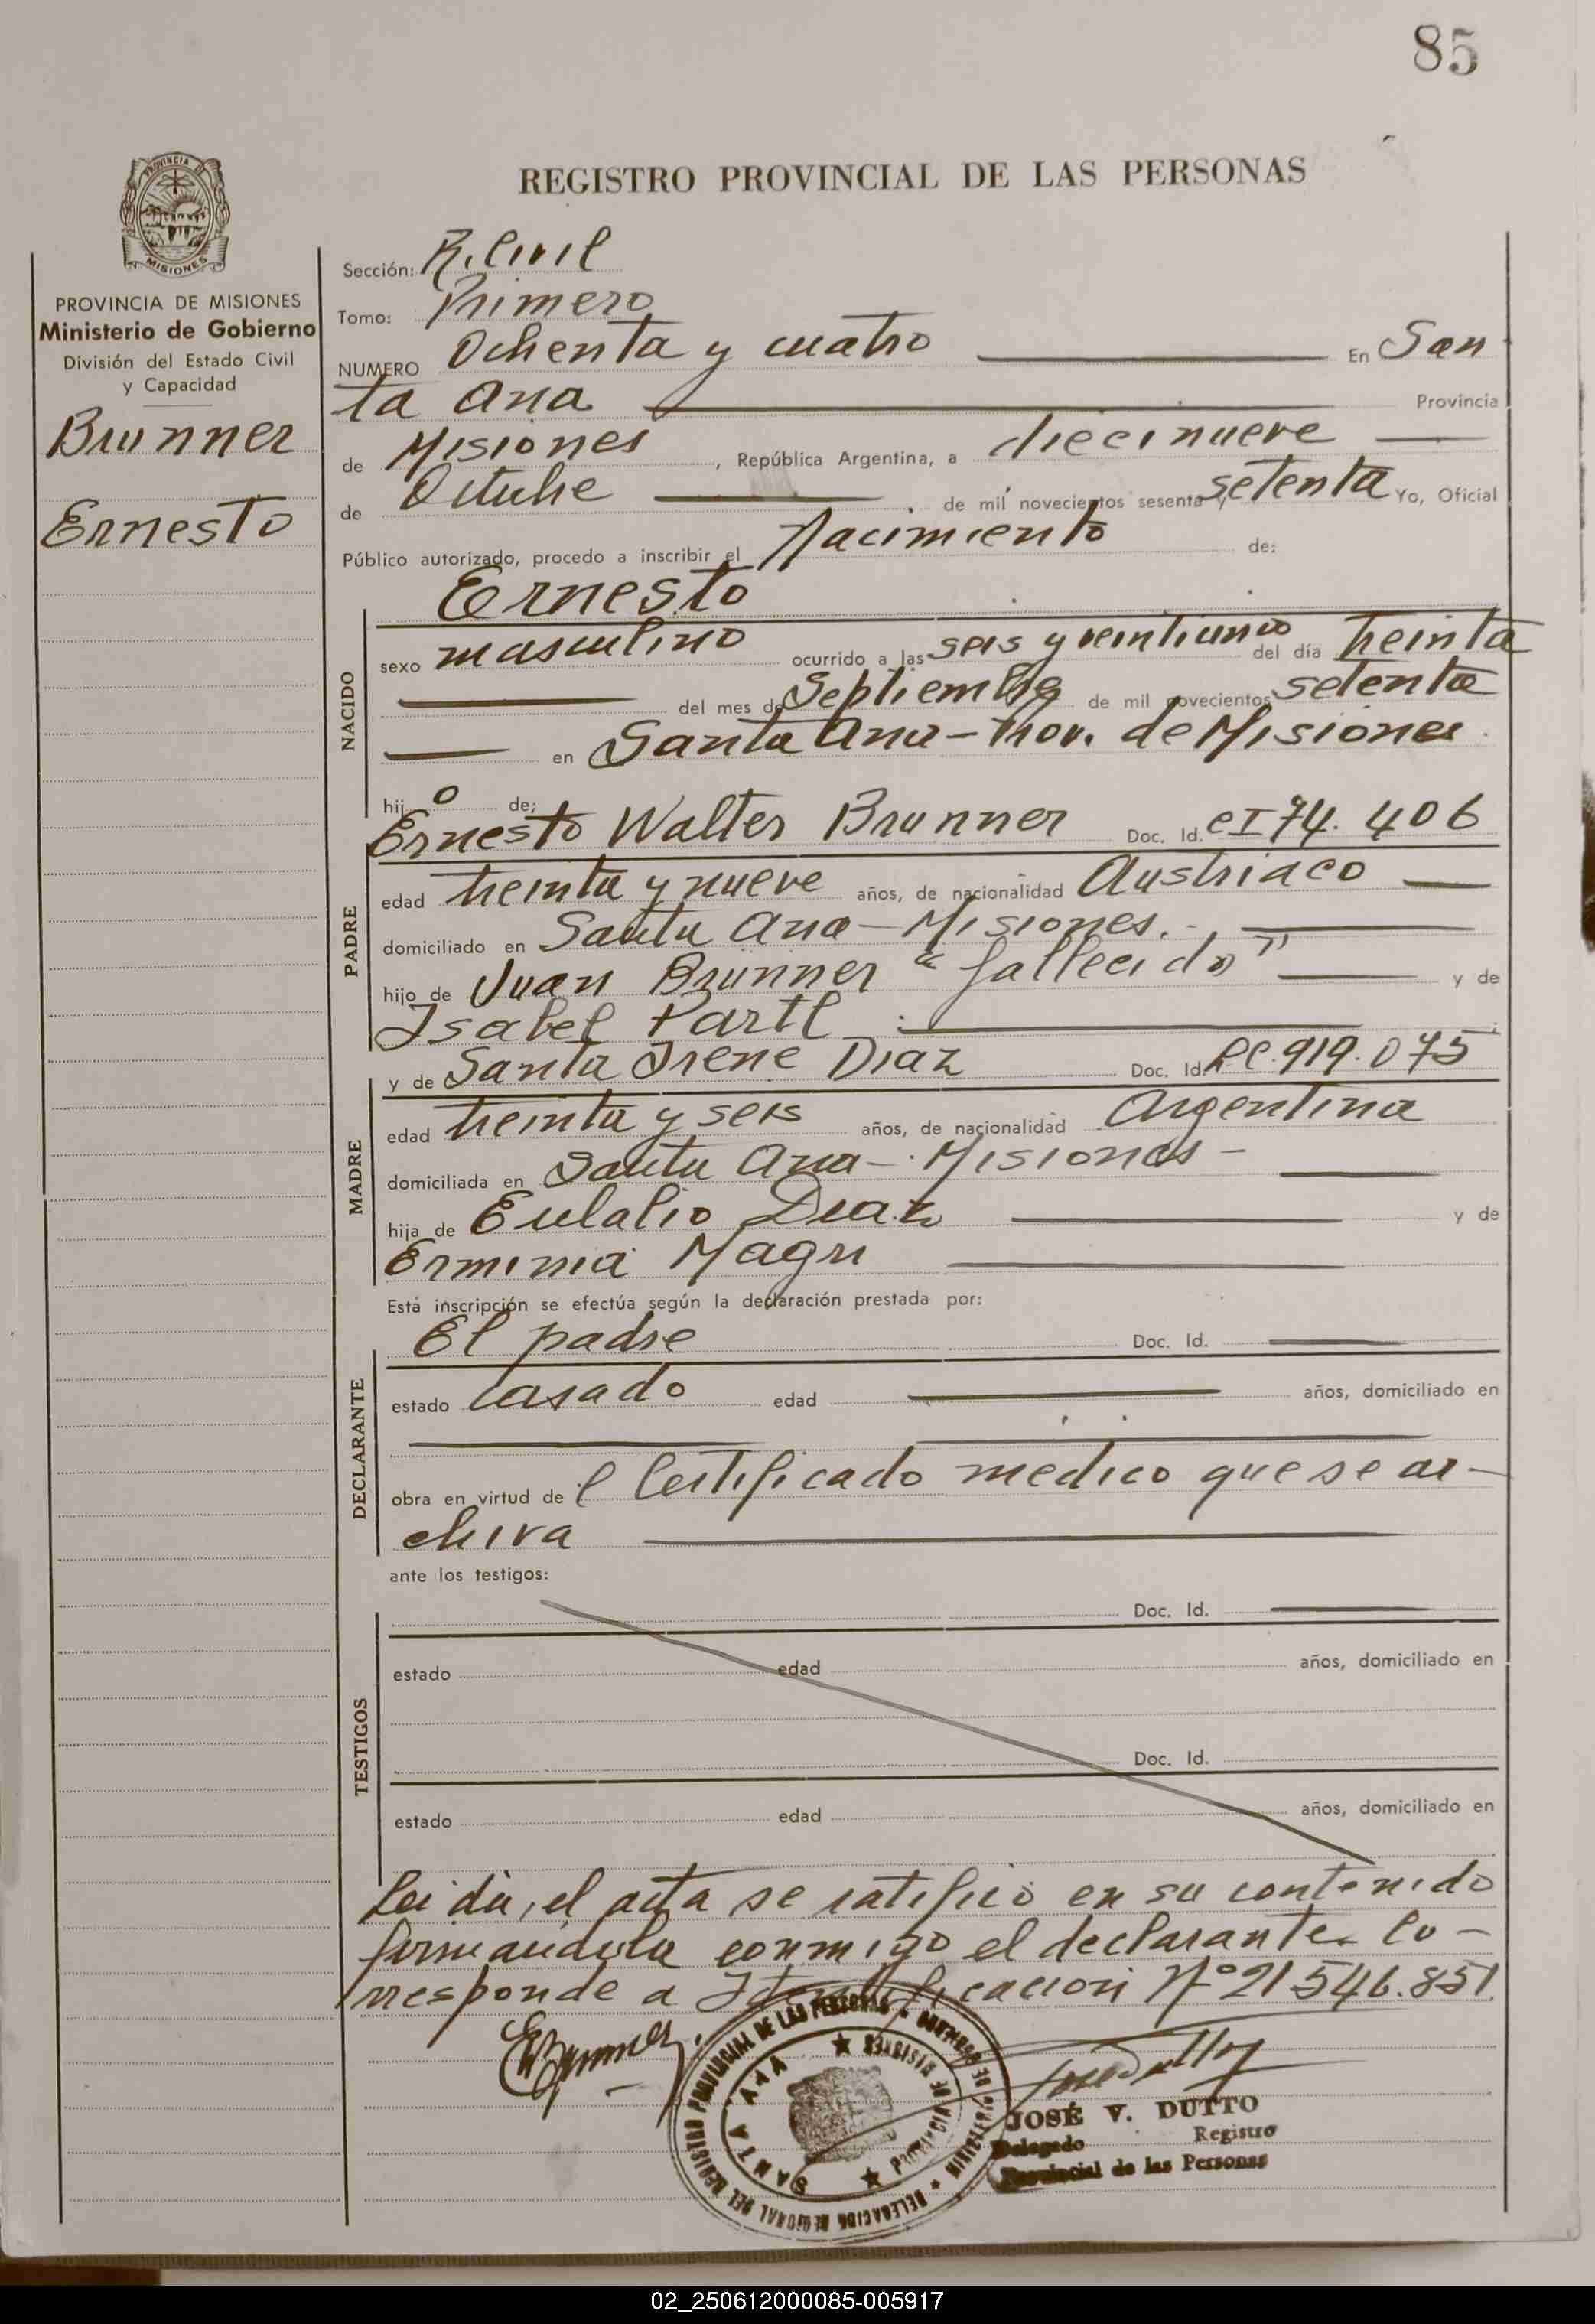 85
REGISTRO PROVINCIAL DE LAS PERSONAS
PROVINCIA DE
MISIONES
PROVINCIA DE MISIONES
Ministerio de Gobierno
División del Estado Civil
y Capacidad
Brunner
Ernesto
Sección: R. Civil
Tomo: Primero
NUMERO Ochenta y cuatro En San
ta Ana Provincia
de Misiones, República Argentina, a diecinueve
de Octubre de mil novecientos sesenta y setenta Yo, Oficial
Público autorizado, procedo a inscribir el Nacimiento de:
Ernesto
NACIDO
sexo masculino ocurrido a las seis y veinticinco del día treinta
del mes de Septiembre de mil novecientos setenta
en Santa Ana - Prov. de Misiones
hijo de;
PADRE
Ernesto Walter Brunner Doc. Id. CI 74.406
edad treinta y nueve años, de nacionalidad Austriaco
domiciliado en Santa Ana - Misiones.-
hijo de Juan Brunner "fallecido" y de
Isabel Partl
MADRE
y de Santa Irene Diaz Doc. Id. LC. 919.075
edad treinta y seis años, de nacionalidad Argentina
domiciliada en Santa Ana - Misiones -
hija de Eulalio Diaz y de
Erminia Magri
Esta inscripción se efectúa según la declaración prestada por:
DECLARANTE
El padre Doc. Id.
estado Casado edad años, domiciliado en
obra en virtud de l Certificado medico que se ar-
chiva
ante los testigos:
TESTIGOS
Doc. Id.
estado edad años, domiciliado en
Doc. Id.
estado edad años, domiciliado en
Leida, el acta se ratifico en su contenido
firmandola conmigo el declarante. Co-
rresponde a Identificacion Nº 21546.851
EBrunner
DELEGACION REGIONAL DEL REGISTRO PROVINCIAL DE LAS PERSONAS
SANTA ANA
PROVINCIA DE MISIONES
JOSÉ V. DUTTO
Delegado Registro
Provincial de las Personas
02_250612000085-005917